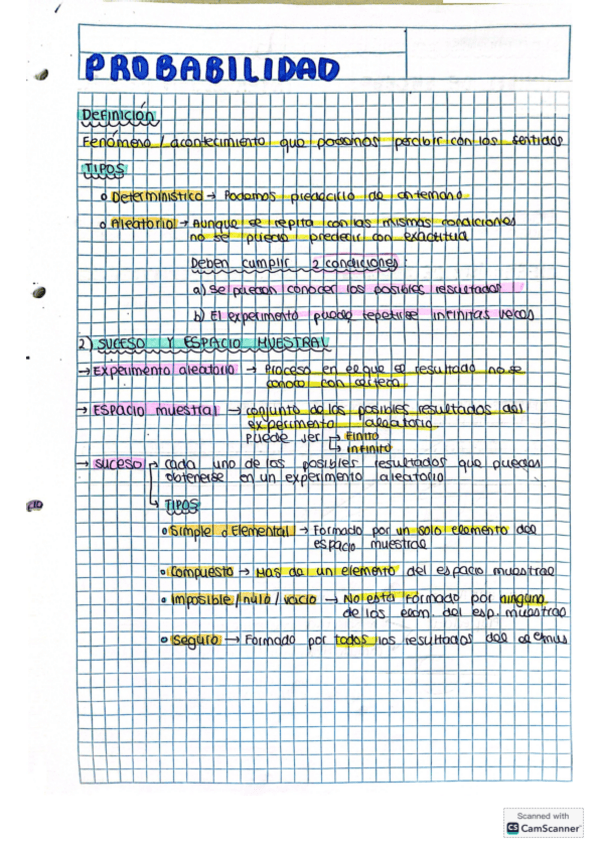 PROBABILIDAD
Definición
Fenómeno / acontecimiento que podemos percibir con los sentidos
TIPOS
Determinístico → Podemos predecirlo de antemano
Aleatorio → Aunque se repita con las mismas condiciones
no se puede predecir con exactitud
Deben cumplir 2 condiciones
a) Se puedan conocer los posibles resultados
b) El experimento puede repetirse infinitas veces
2) SUCESO Y ESPACIO MUESTRAL
→ Experimento aleatorio → Proceso en el que el resultado no se
conoce con certeza
→ ESPACIO muestral → conjunto de los posibles resultados del
experimento aleatorio
puede ser → Finito
→ infinito
→ suceso → cada uno de los posibles resultados que puedas
obtenerse en un experimento aleatorio
→ TIPOS
Simple o Elemental → Formado por un solo elemento del
espacio muestral
Compuesto → Mas de un elemento del espacio muestral
Imposible / nulo / vacio → No esta formado por ninguno
de los elem. del esp. muestral
Seguro → Formado por todos los resultados del
Scanned with
CS CamScanner